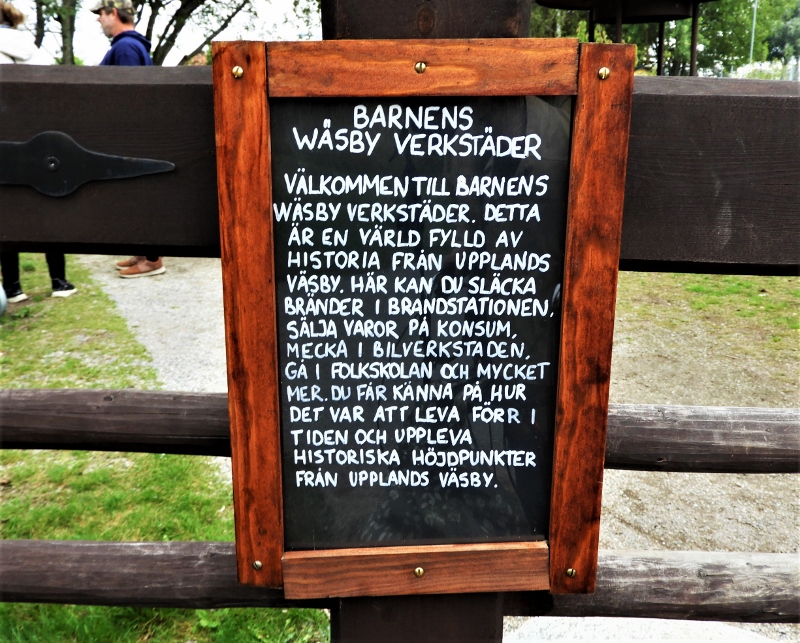 BARNENS
WÄSBY VERKSTÄDER
VÄLKOMMEN TILL BARNENS
WÄSBY VERKSTÄDER. DETTA
ÄR EN VÄRLD FYLLD AV
HISTORIA FRÅN UPPLANDS
VÄSBY. HÄR KAN DU SLÄCKA
BRÄNDER I BRANDSTATIONEN,
SÄLJA VAROR PÅ KONSUM,
MECKA I BILVERKSTADEN,
GÅ I FOLKSKOLAN OCH MYCKET
MER. DU FÅR KÄNNA PÅ HUR
DET VAR ATT LEVA FÖRR I
TIDEN OCH UPPLEVA
HISTORISKA HÖJDPUNKTER
FRÅN UPPLANDS VÄSBY.